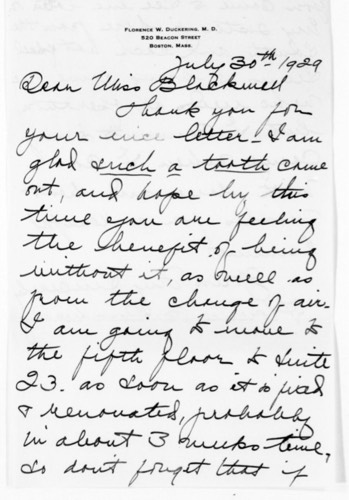 FLORENCE W. DUCKERING, M. D.
520 BEACON STREET
BOSTON, MASS.
July 30th 1929
Dear Miss Blackwell
Thank you for
your nice letter - I am
glad such a tooth came
out, and hope by this
time you are feeling
the benefit of being
without it, as well as
from the change of air.
I am going to move to
the fifth floor to Suite
23. as soon as it is fixed
& renovated, probably
in about 3 weeks time,
so don't forget that if